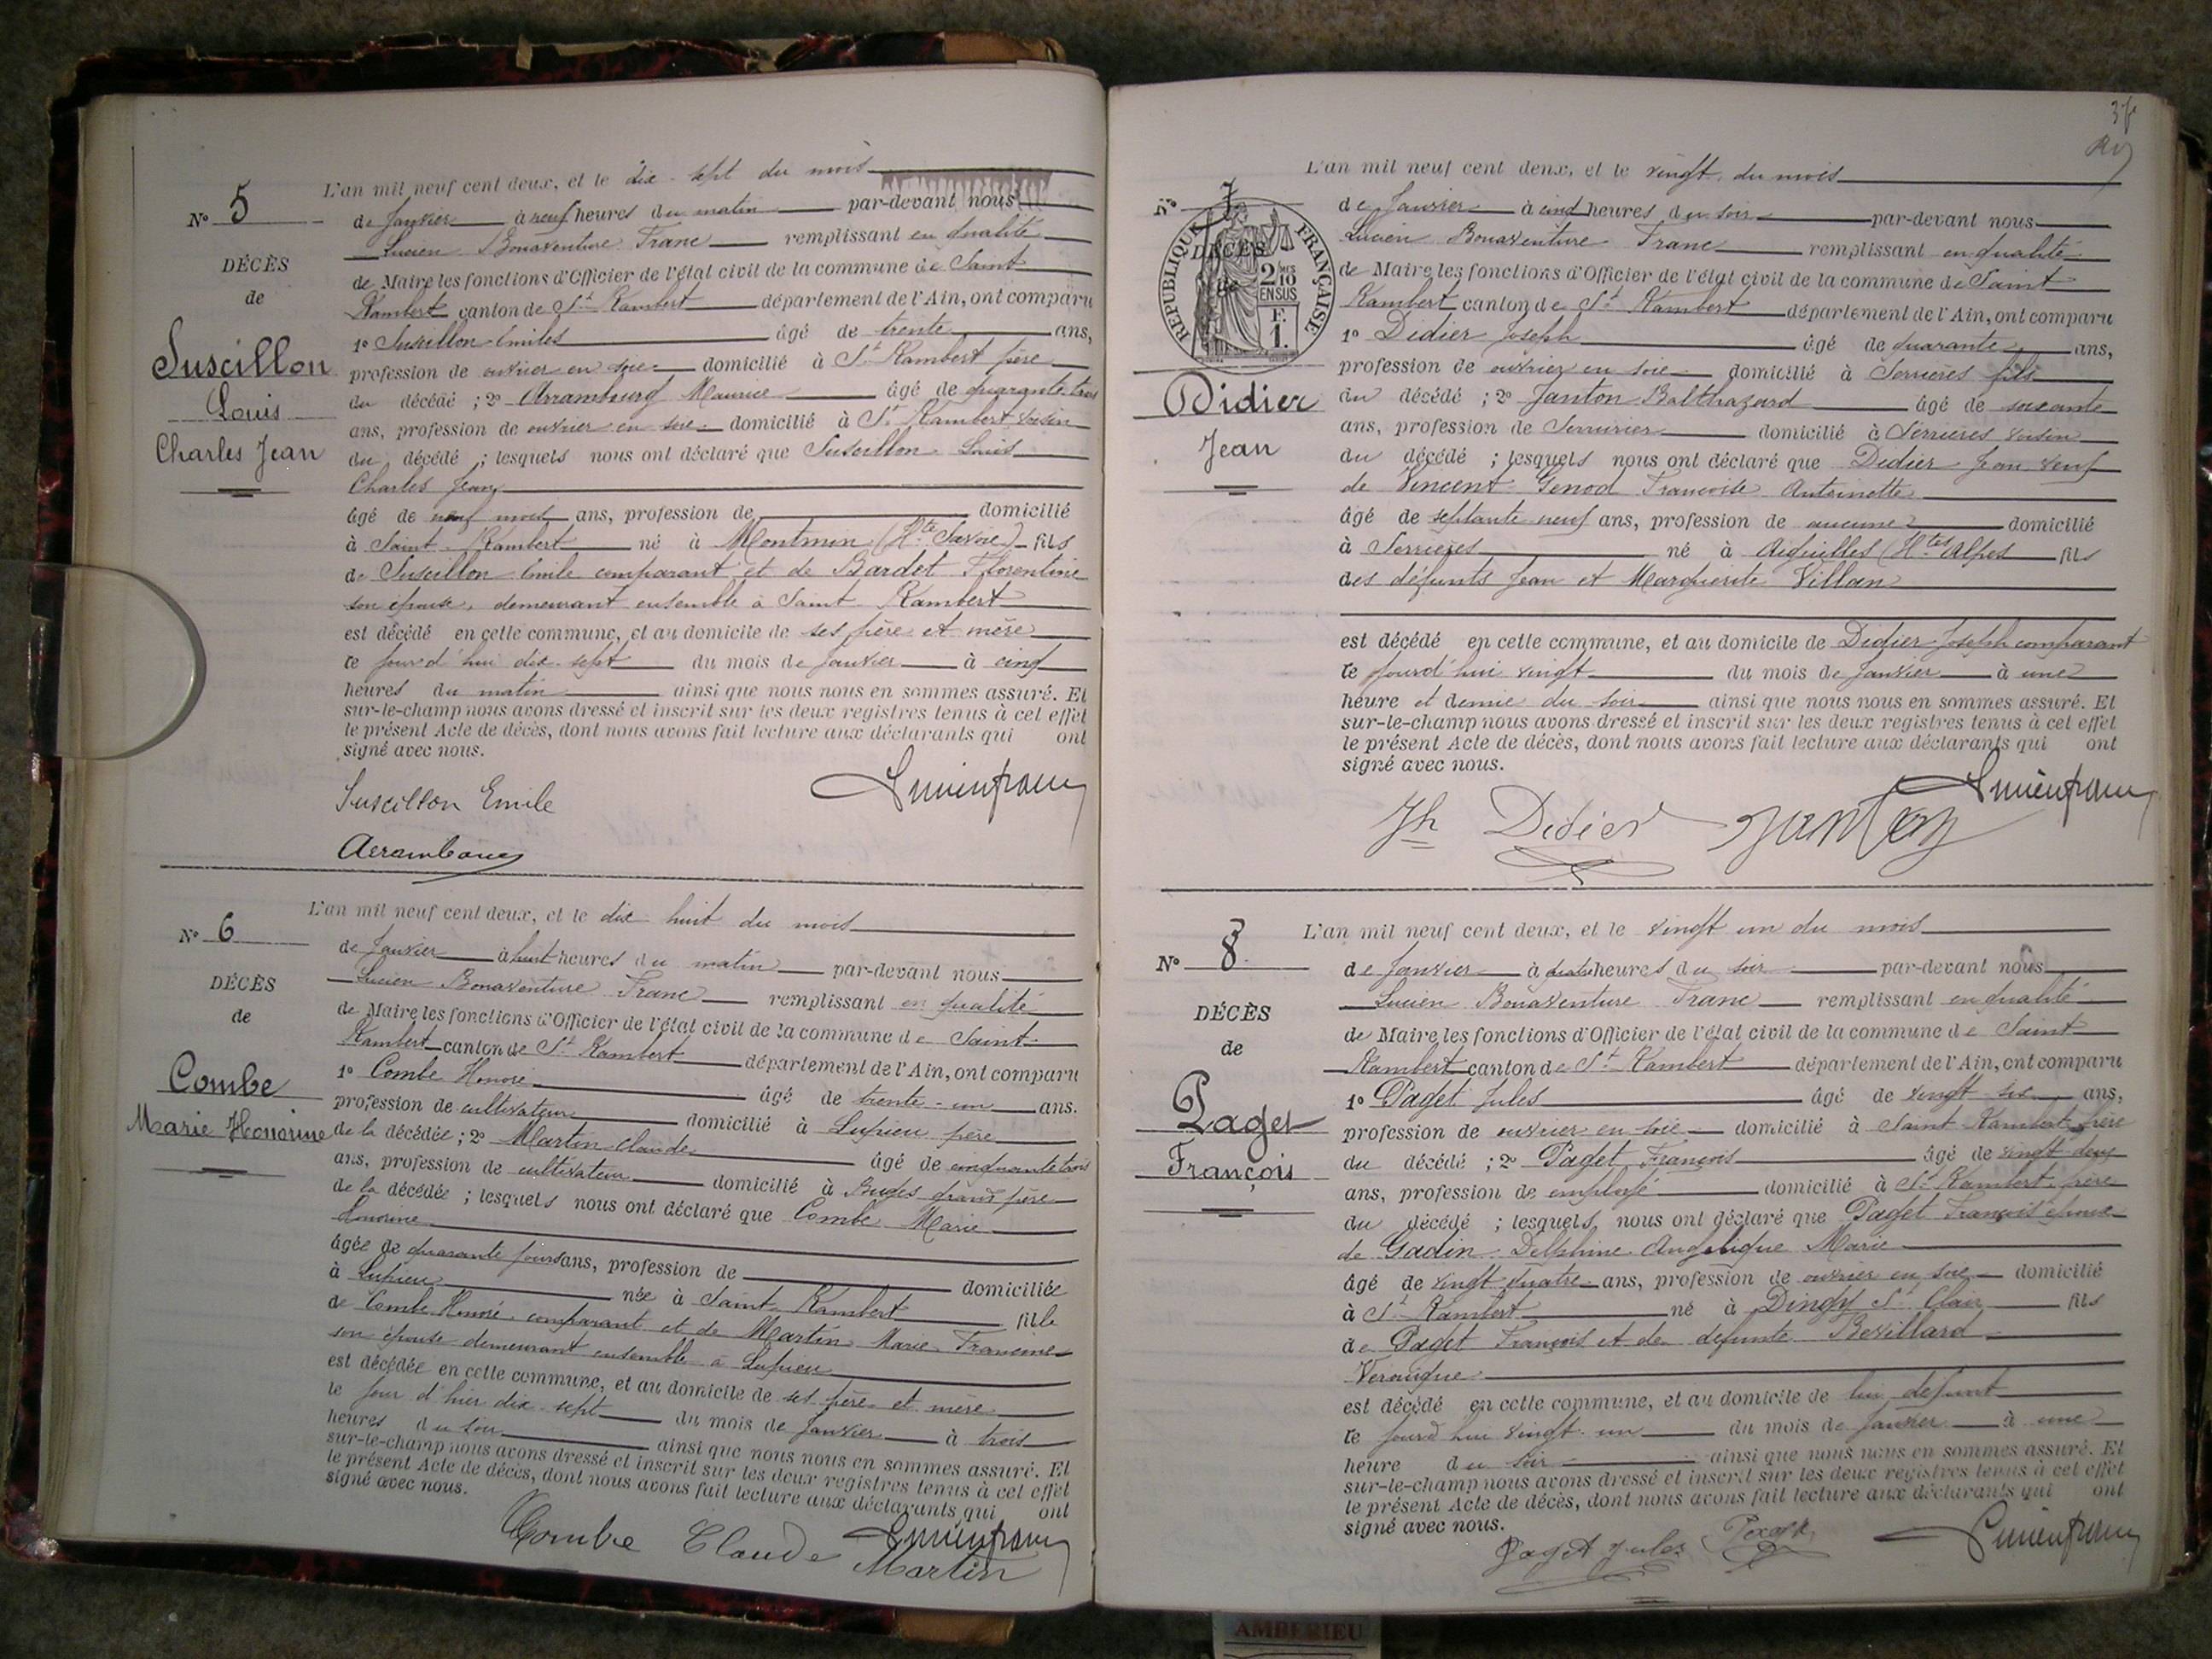 L'an mil neuf cent deux, et le dix-sept du mois
N° 5
de Janvier à neuf heures du matin par-devant nous
Lucien Bonaventure Franc remplissant en qualité
DÉCÈS
de Maire les fonctions d'Officier de l'état civil de la commune de Saint
de
Rambert canton de St Rambert département de l'Ain, ont comparu
1° Suscillon Emile âgé de trente ans,
Suscillon
profession de ouvrier en soie domicilié à St Rambert père
Louis
du décédé ; 2° Arrambourg Maurice âgé de quarante trois
Charles Jean
ans, profession de ouvrier en soie domicilié à St Rambert voisin
du décédé ; lesquels nous ont déclaré que Suscillon Louis
Charles Jean
âgé de neuf mois ans, profession de domicilié
à Saint Rambert né à Montmin (Hte Savoie) fils
de Suscillon Emile comparant et de Bardet Florentine
son épouse, demeurant ensemble à Saint Rambert
est décédé en cette commune, et au domicile de ses père et mère
le jourd'hui dix-sept du mois de Janvier à cinq
heures du matin ainsi que nous nous en sommes assuré. Et
sur-le-champ nous avons dressé et inscrit sur les deux registres tenus à cet effet
le présent Acte de décès, dont nous avons fait lecture aux déclarants qui ont
signé avec nous.
Suscillon Emile
L'an mil neuf cent deux, et le dix-huit du mois
N° 6
de Janvier à huit heures du matin par-devant nous
Lucien Bonaventure Franc remplissant en qualité
DÉCÈS
de Maire les fonctions d'Officier de l'état civil de la commune de Saint
de
Rambert canton de St Rambert département de l'Ain, ont comparu
1° Combe Honoré âgé de trente-un ans.
Combe
profession de cultivateur domicilié à Lupieu père
Marie Honorine
de la décédée ; 2° Martin Claude âgé de cinquante trois
ans, profession de cultivateur domicilié à Buges grand père
de la décédée ; lesquels nous ont déclaré que Combe Marie
Honorine
âgée de quarante jours ans, profession de domiciliée
à Lupieu née à Saint-Rambert fille
de Combe Honoré comparant et de Martin Marie Francine
son épouse demeurant ensemble à Lupieu
est décédée en cette commune, et au domicile de ses père et mère
le jour d'hier dix-sept du mois de Janvier à trois
heures du soir ainsi que nous nous en sommes assuré. Et
sur-le-champ nous avons dressé et inscrit sur les deux registres tenus à cet effet
le présent Acte de décès, dont nous avons fait lecture aux déclarants qui ont
signé avec nous.
Combe Claude
Martin
L'an mil neuf cent deux, et le vingt du mois
N° 7
de Janvier à cinq heures du soir par-devant nous
RÉPUBLIQUE FRANÇAISE
2/10 EN SUS
F. 1.
Lucien Bonaventure Franc remplissant en qualité
DÉCÈS
de Maire les fonctions d'Officier de l'état civil de la commune de Saint
de
Rambert canton de St Rambert département de l'Ain, ont comparu
1° Didier Joseph âgé de quarante ans,
profession de ouvrier en soie domicilié à Serrières fils
Didier
du décédé ; 2° Janton Balthazard âgé de soixante
Jean
ans, profession de Serrurier domicilié à Serrières voisin
du décédé ; lesquels nous ont déclaré que Didier Jean veuf
de Vincent Genod Francoise Antoinette
âgé de septante neuf ans, profession de aucune domicilié
à Serrières né à Aiguilles (Htes Alpes fils
des défunts Jean et Marguerite Villan
est décédé en cette commune, et au domicile de Didier Joseph comparant
le jourd'hui vingt du mois de Janvier à une
heure et demie du soir ainsi que nous nous en sommes assuré. Et
sur-le-champ nous avons dressé et inscrit sur les deux registres tenus à cet effet
le présent Acte de décès, dont nous avons fait lecture aux déclarants qui ont
signé avec nous.
Jh Didier Janton
L'an mil neuf cent deux, et le vingt un du mois
N° 8
de Janvier à quatre heures du soir par-devant nous
Lucien Bonaventure Franc remplissant en qualité
DÉCÈS
de Maire les fonctions d'Officier de l'état civil de la commune de Saint
de
Rambert canton de St Rambert département de l'Ain, ont comparu
1° Paget Jules âgé de vingt six ans,
Paget
profession de ouvrier en soie domicilié à Saint Rambert frère
François
du décédé ; 2° Paget François âgé de vingt deux
ans, profession de employé domicilié à St Rambert frère
du décédé ; lesquels nous ont déclaré que Paget François époux
de Gadin Delphine Angelique Marie
âgé de vingt quatre ans, profession de ouvrier en soie domicilié
à St Rambert né à Dingy St Clair fils
de Paget François et de defunte Bevillard
Veronique
est décédé en cette commune, et au domicile de lui défunt
le jourd'hui vingt-un du mois de Janvier à une
heure du soir ainsi que nous nous en sommes assuré. Et
sur-le-champ nous avons dressé et inscrit sur les deux registres tenus à cet effet
le présent Acte de décès, dont nous avons fait lecture aux déclarants qui ont
signé avec nous.
Paget Jules Paget
AMBERIEU